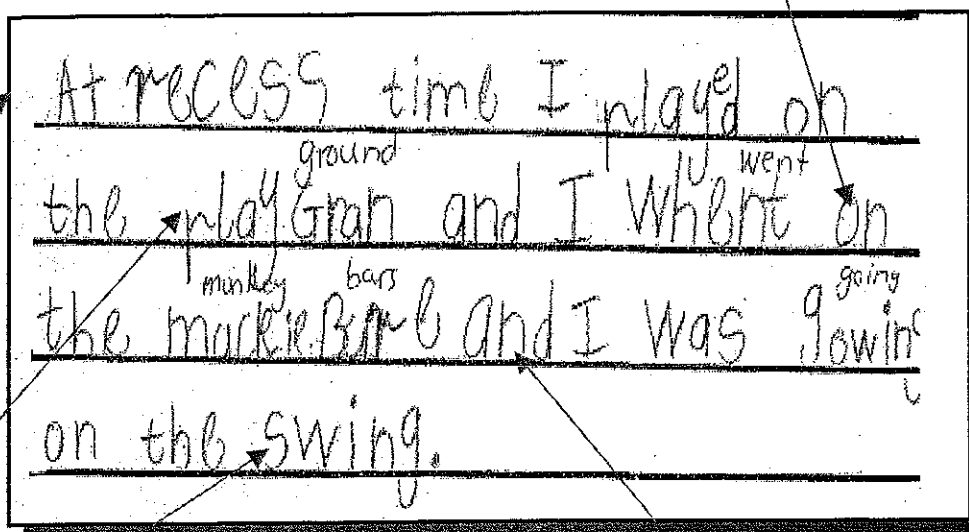 At recess time I played on
ground went
the playGran and I Whent on
minkey bars going
the mackie Bare and I was gowing
on the swing.